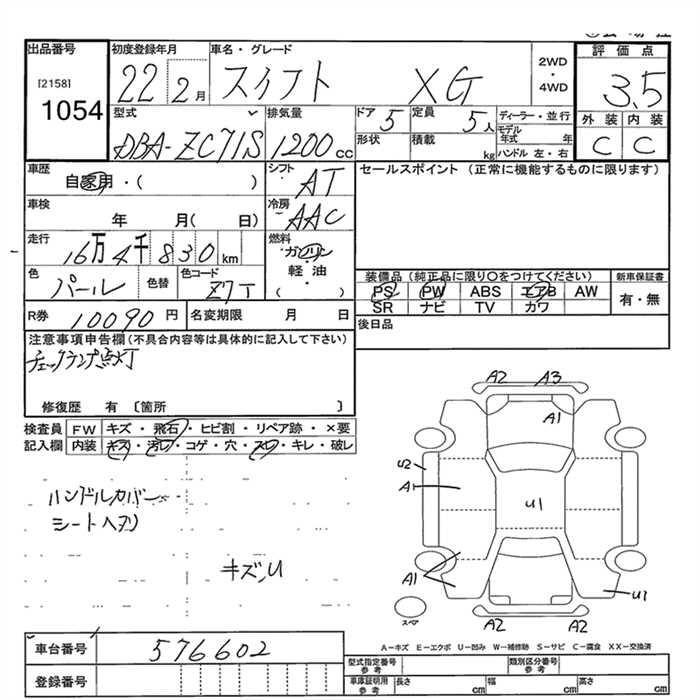 出品番号
[2158]
1054
初度登録年月
22 2月
車名・グレード
スイフト XG
2WD
・
4WD
評価点
3.5
外装 内装
C C
型式
DBA-ZC71S
排気量
1200cc
ドア 5
定員 5人
ディーラー・並行
モデル年式 年
形状
積載 kg
ハンドル 左・右
車歴
自家用・( )
シフト
AT
セールスポイント(正常に機能するものに限ります)
車検
年 月( 日)
冷房
AAC
走行
16万4千830km
燃料
ガソリン
軽・油
( )
色
パール
色替
色コード
Z7T
装備品(純正品に限り○をつけてください)
PS PW ABS エアB AW
SR ナビ TV カワ
新車保証書
有・無
R券 10090円
名変期限 月 日
後日品
注意事項申告欄(不具合内容等は具体的に記入して下さい)
チェックランプ点灯
修復歴 有〔箇所 〕
検査員記入欄
FW キズ・飛石・ヒビ割・リペア跡・×要
内装 キズ・汚レ・コゲ・穴・スレ・キレ・破レ
ハンドルカバー
シートヘタリ
キズ,U
A2 A3
A1
U2
A1
U1
A1
U1
スペア
A2 A2
A-キズ E-エクボ U-凹み W-補修跡 S-サビ C-腐食 XX-交換済
車台番号 576602
登録番号
型式指定番号参考
類別区分番号参考
車庫証明用参考
長さ cm
幅 cm
高さ cm